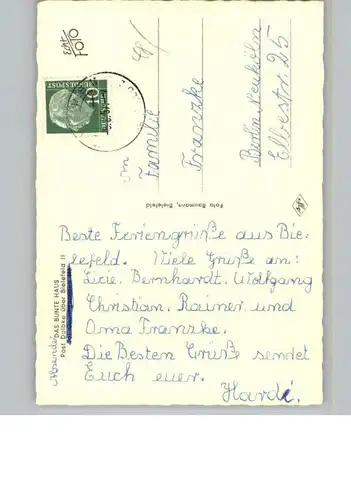 Echt
FOTO
BUNDESPOST
10
An
Familie
Franzke
Berlin Neukölln
Elbestr. 25
Foto Baumann, Bielefeld
Absender
DAS BUNTE HAUS
Post Dalbke über Bielefeld II
Beste Feriengrüße aus Bie-
lefeld. Viele Grüße an:
Licie, Bernhardt, Wolfgang
Christian, Rainer, und
Oma Franzke.
Die Besten Grüße sendet
Euch euer.
Hardi.